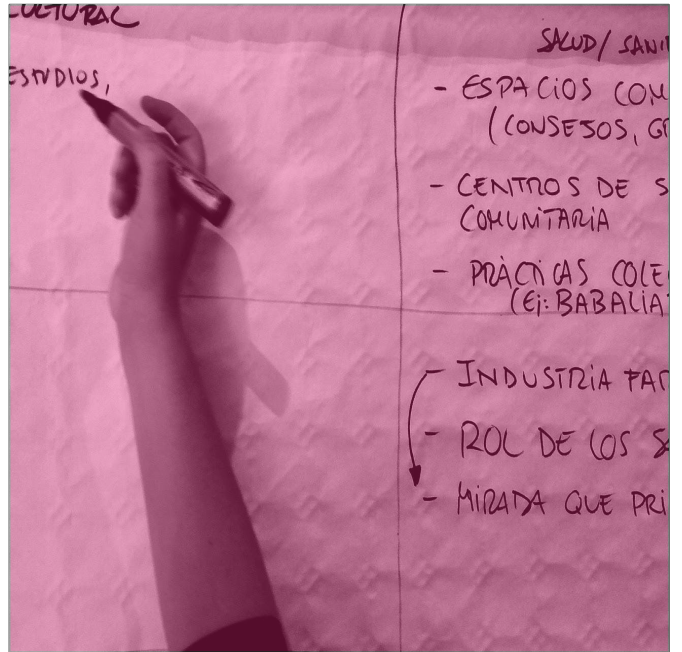 CULTURAL
ESTUDIOS,
SALUD/ SANI
- ESPACIOS COM
(CONSEJOS, GR
- CENTROS DE S
COMUNITARIA
- PRÀCTICAS COLE
(Ej: BABALIA
- INDUSTRIA FAR
- ROL DE LOS S
- MIRADA QUE PRI